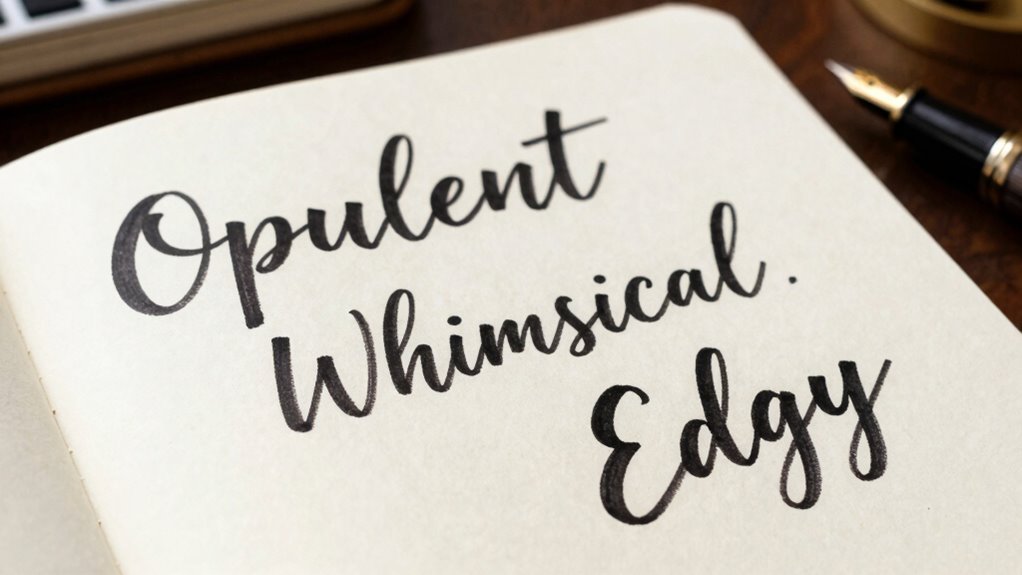 Opulent
Whimsical.
Edgy